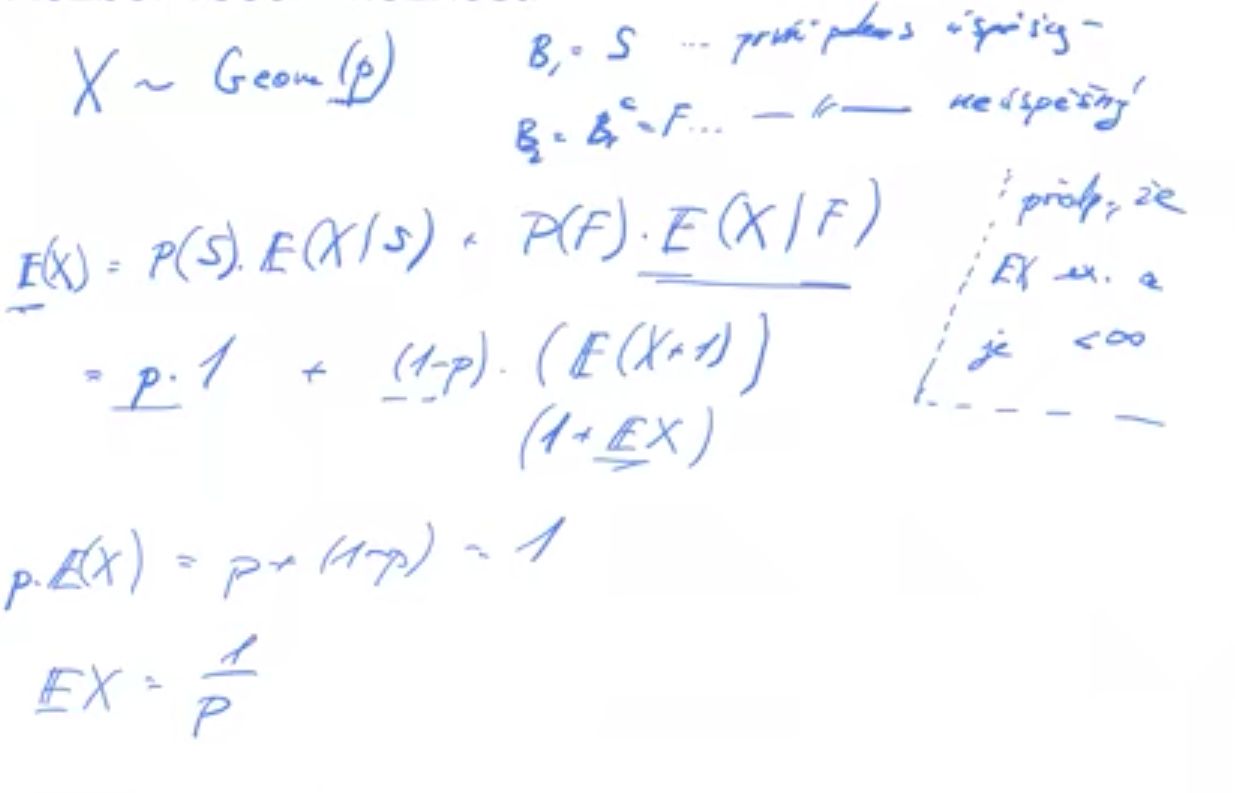 X ~ Geom(p)
B₁ = S ... první pokus úspěšný
B₂ = B₁ᶜ = F... —〃— neúspěšný
E(X) = P(S). E(X|S) + P(F). E(X|F)
= p.1 + (1-p). (E(X+1))
(1+EX)
předp., že
EX ex. a
je <∞
p.E(X) = p + (1-p) = 1
EX = 1/p